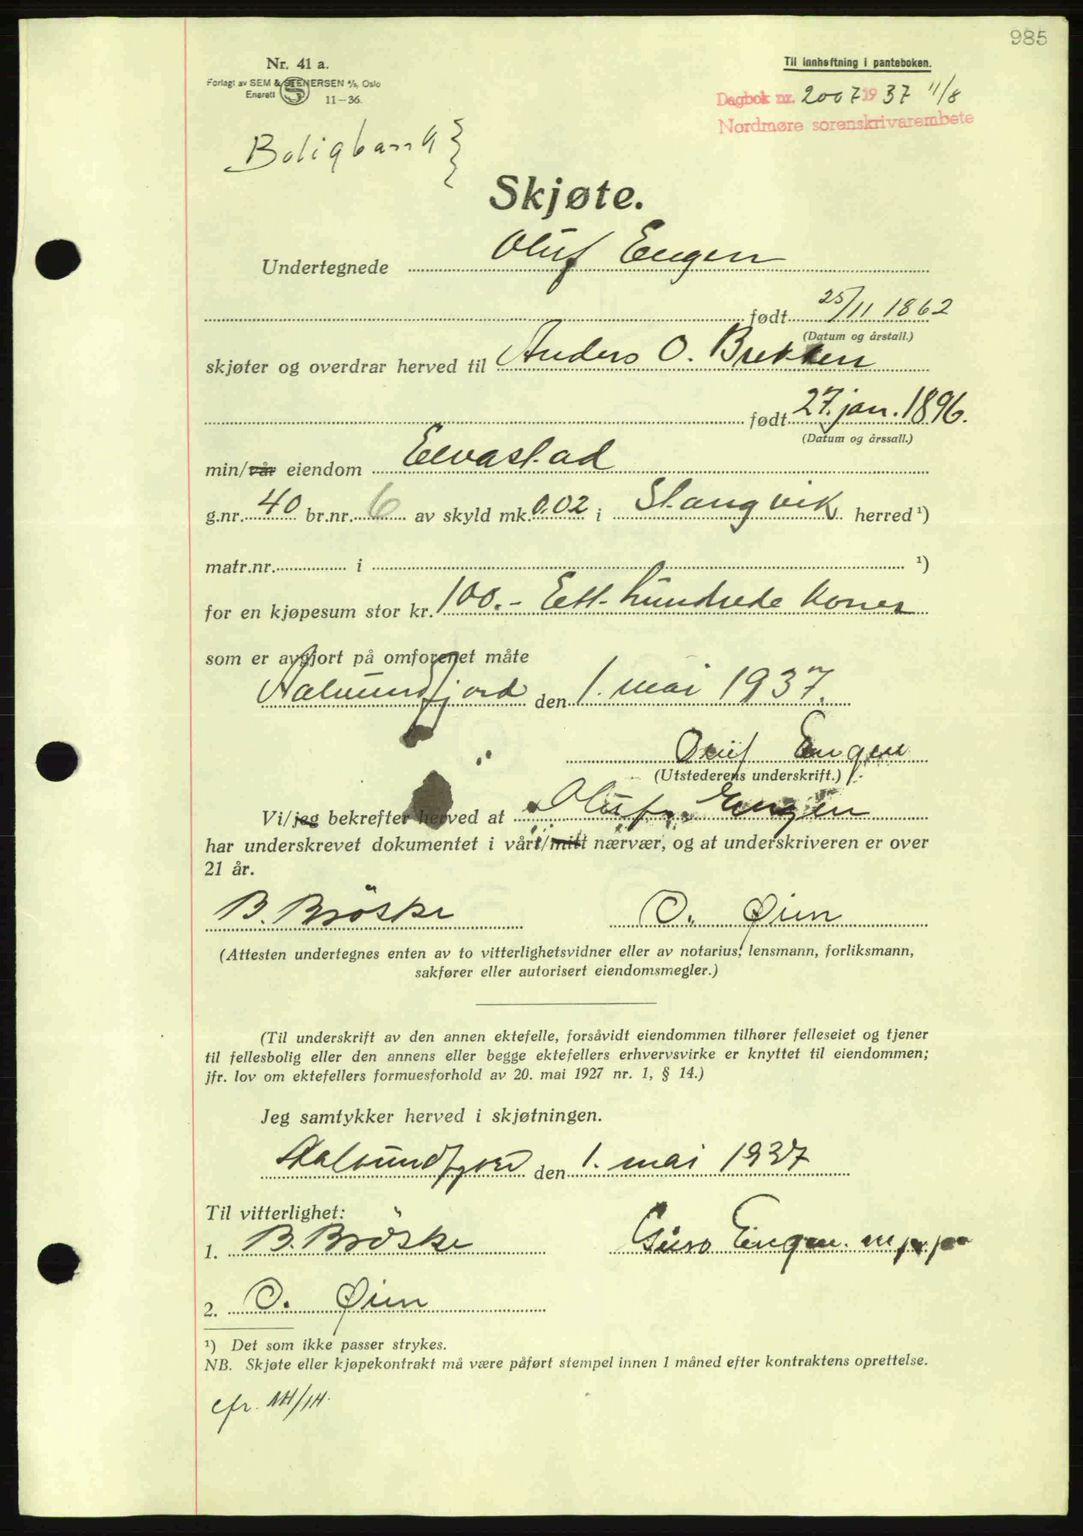 985
Nr. 41 a.
Forlagt av SEM & STENERSEN A/S, Oslo
Enerett 11-36.
Til innheftning i panteboken.
Dagbok nr. 2007 1937 11/8
Nordmøre sorenskrivarembete
Boligbank
Skjøte.
Undertegnede Oluf Engen
født 25/11 1862
(Datum og årstall.)
skjøter og overdrar herved til Anders O. Brekken
født 27. jan. 1896.
(Datum og årssall.)
min/vår eiendom Elvastad
g.nr. 40 br.nr. 6 av skyld mk. 0.02 i Stangvik herred ¹)
matr.nr. i ¹)
for en kjøpesum stor kr. 100.- Ett hundrede kroner
som er avgjort på omforenet måte
Aalvundfjord den 1. mai 1937.
Oluf Engen
(Utstederens underskrift.)
Vi/jeg bekrefter herved at Oluf Engen
har underskrevet dokumentet i vårt/mitt nærvær, og at underskriveren er over
21 år.
B. Brøske O. Øien
(Attesten undertegnes enten av to vitterlighetsvidner eller av notarius, lensmann, forliksmann,
sakfører eller autorisert eiendomsmegler.)
(Til underskrift av den annen ektefelle, forsåvidt eiendommen tilhører felleseiet og tjener
til fellesbolig eller den annens eller begge ektefellers erhvervsvirke er knyttet til eiendommen;
jfr. lov om ektefellers formuesforhold av 20. mai 1927 nr. 1, § 14.)
Jeg samtykker herved i skjøtningen.
Aalvundfjord den 1. mai 1937
Til vitterlighet:
1. B. Brøske Guro Engen m.p.p.
2. O. Øien
¹) Det som ikke passer strykes.
NB. Skjøte eller kjøpekontrakt må være påført stempel innen 1 måned efter kontraktens oprettelse.
cfr.